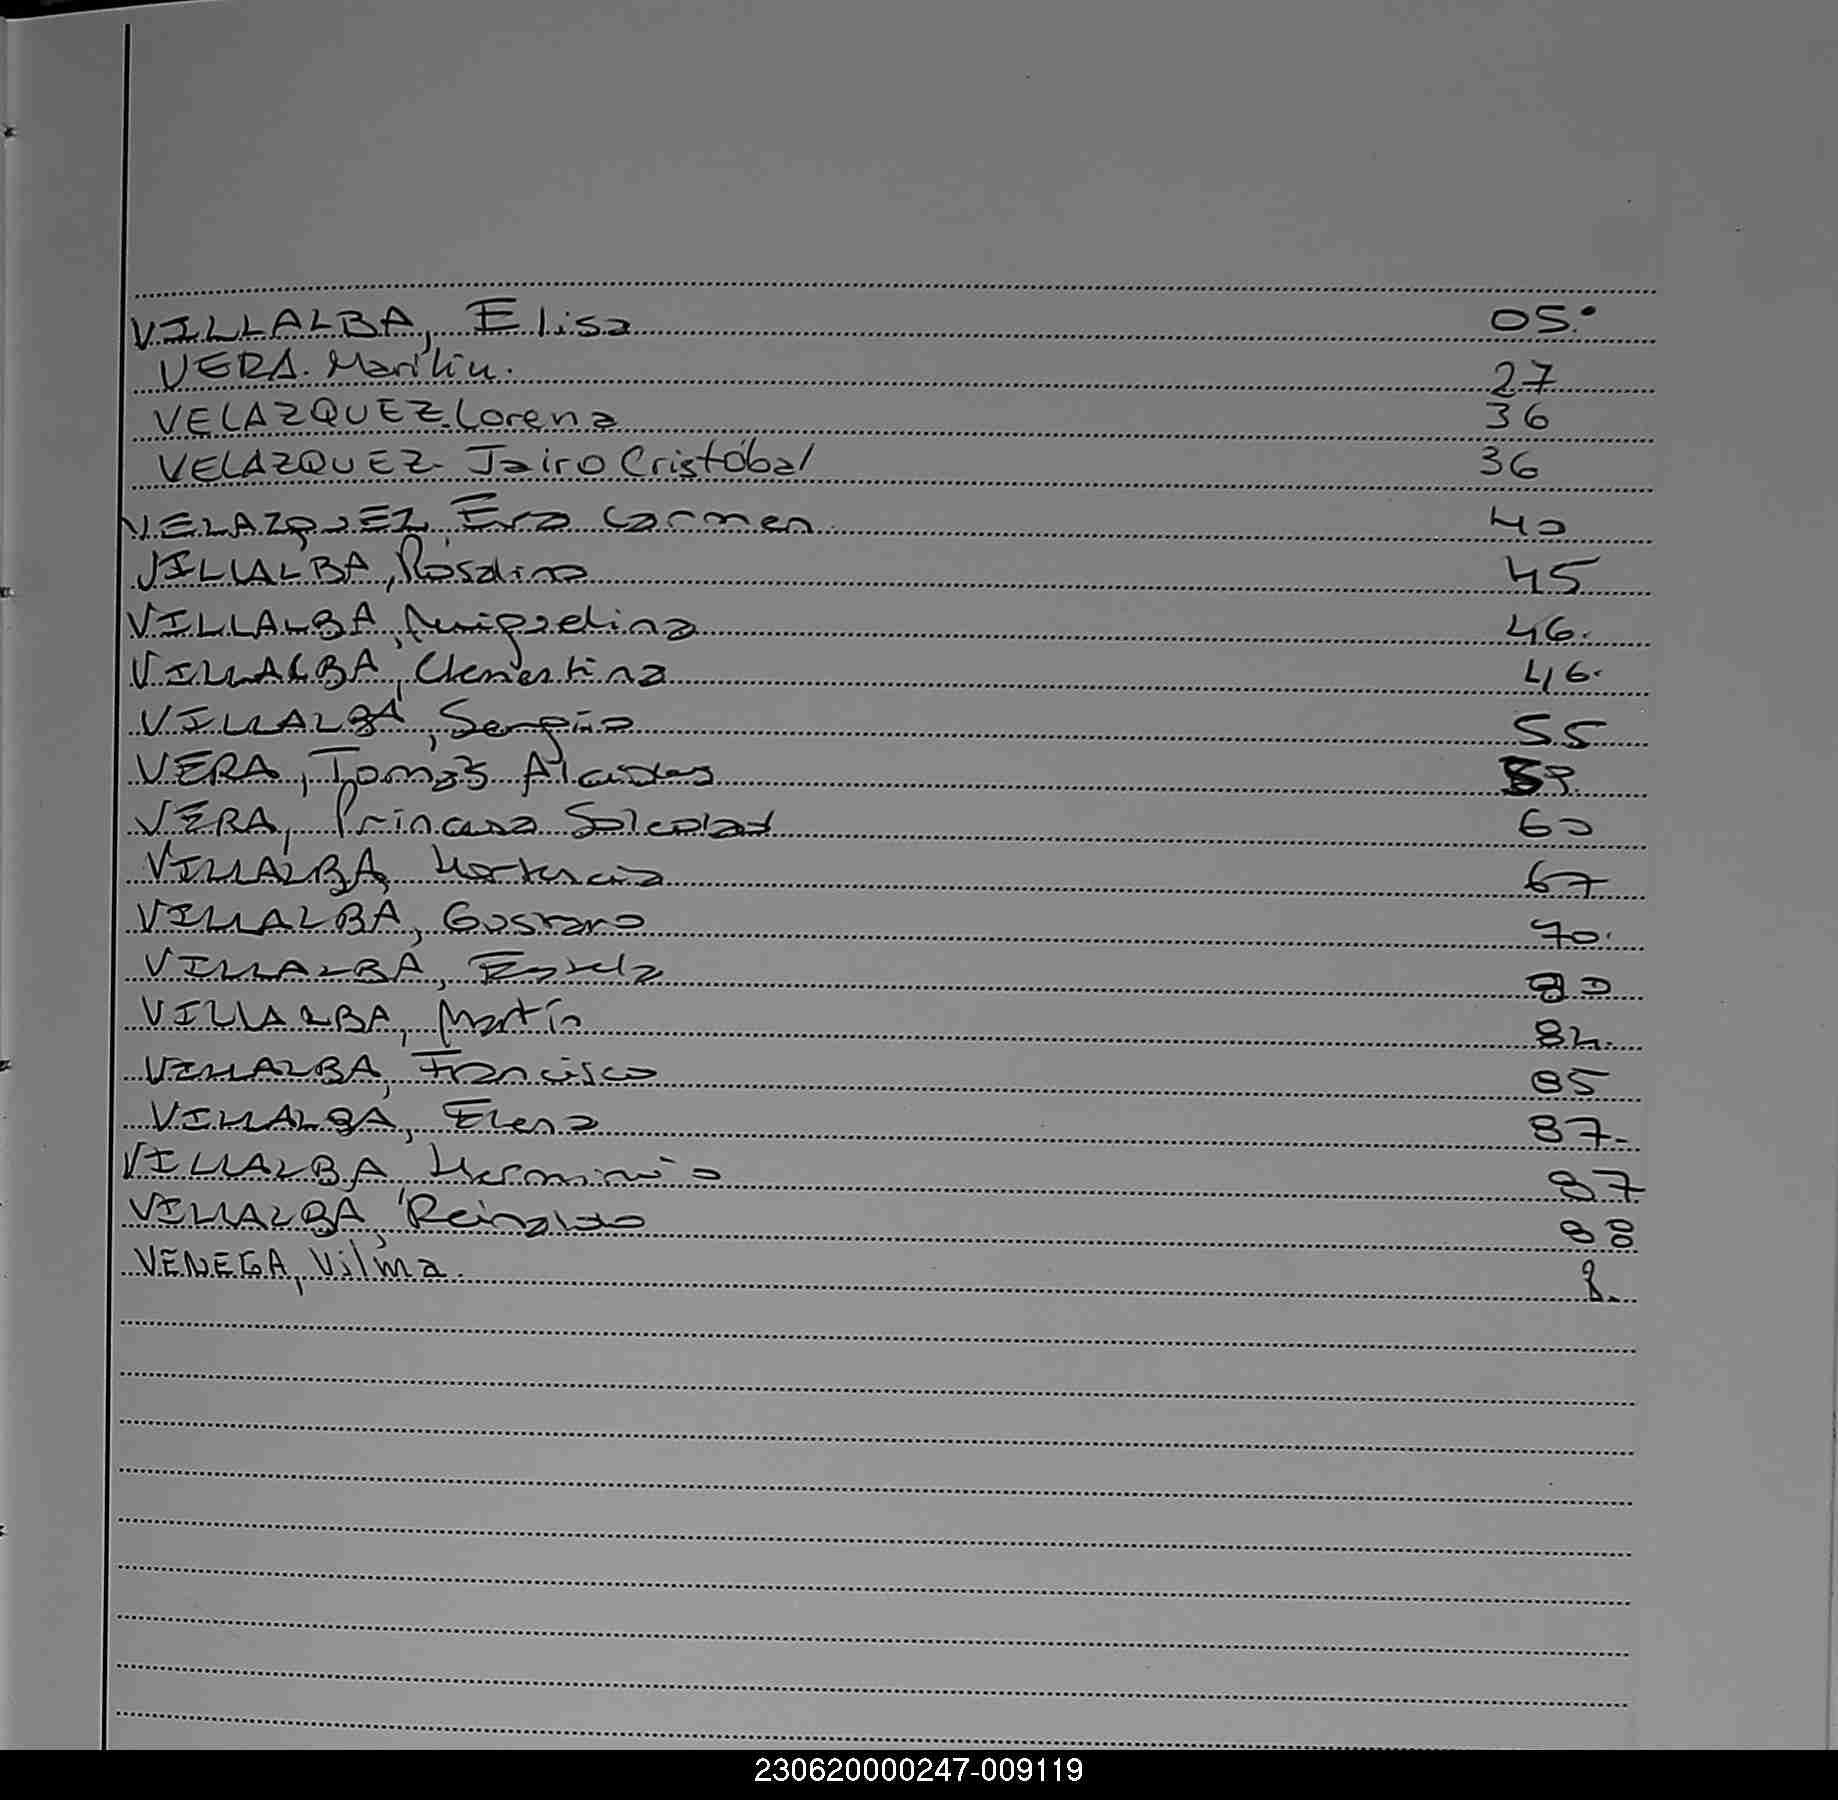 VILLALBA, Elisa 05.
VERA. Marilin. 27
VELAZQUEZ. Lorena 36
VELAZQUEZ. Jairo Cristóbal 36
VELAZQUEZ, Eva Carmen 40
VILLALBA, Rosalina 45
VILLALBA, Miguelina 46.
VILLALBA, Clementina 46.
VILLALBA, Sergio 55
VERA, Tomás Alcides
VERA, Princesa Soledad 60
VILLALBA, Hortencia 67
VILLALBA, Gustavo 70.
VILLALBA, Estela 80
VILLALBA, Martín 84.
VILLALBA, Francisco 85
VILLALBA, Elena 87-
VILLALBA, Herminio 87
VILLALBA, Reinaldo 88
VENEGA, Vilma.
230620000247-009119